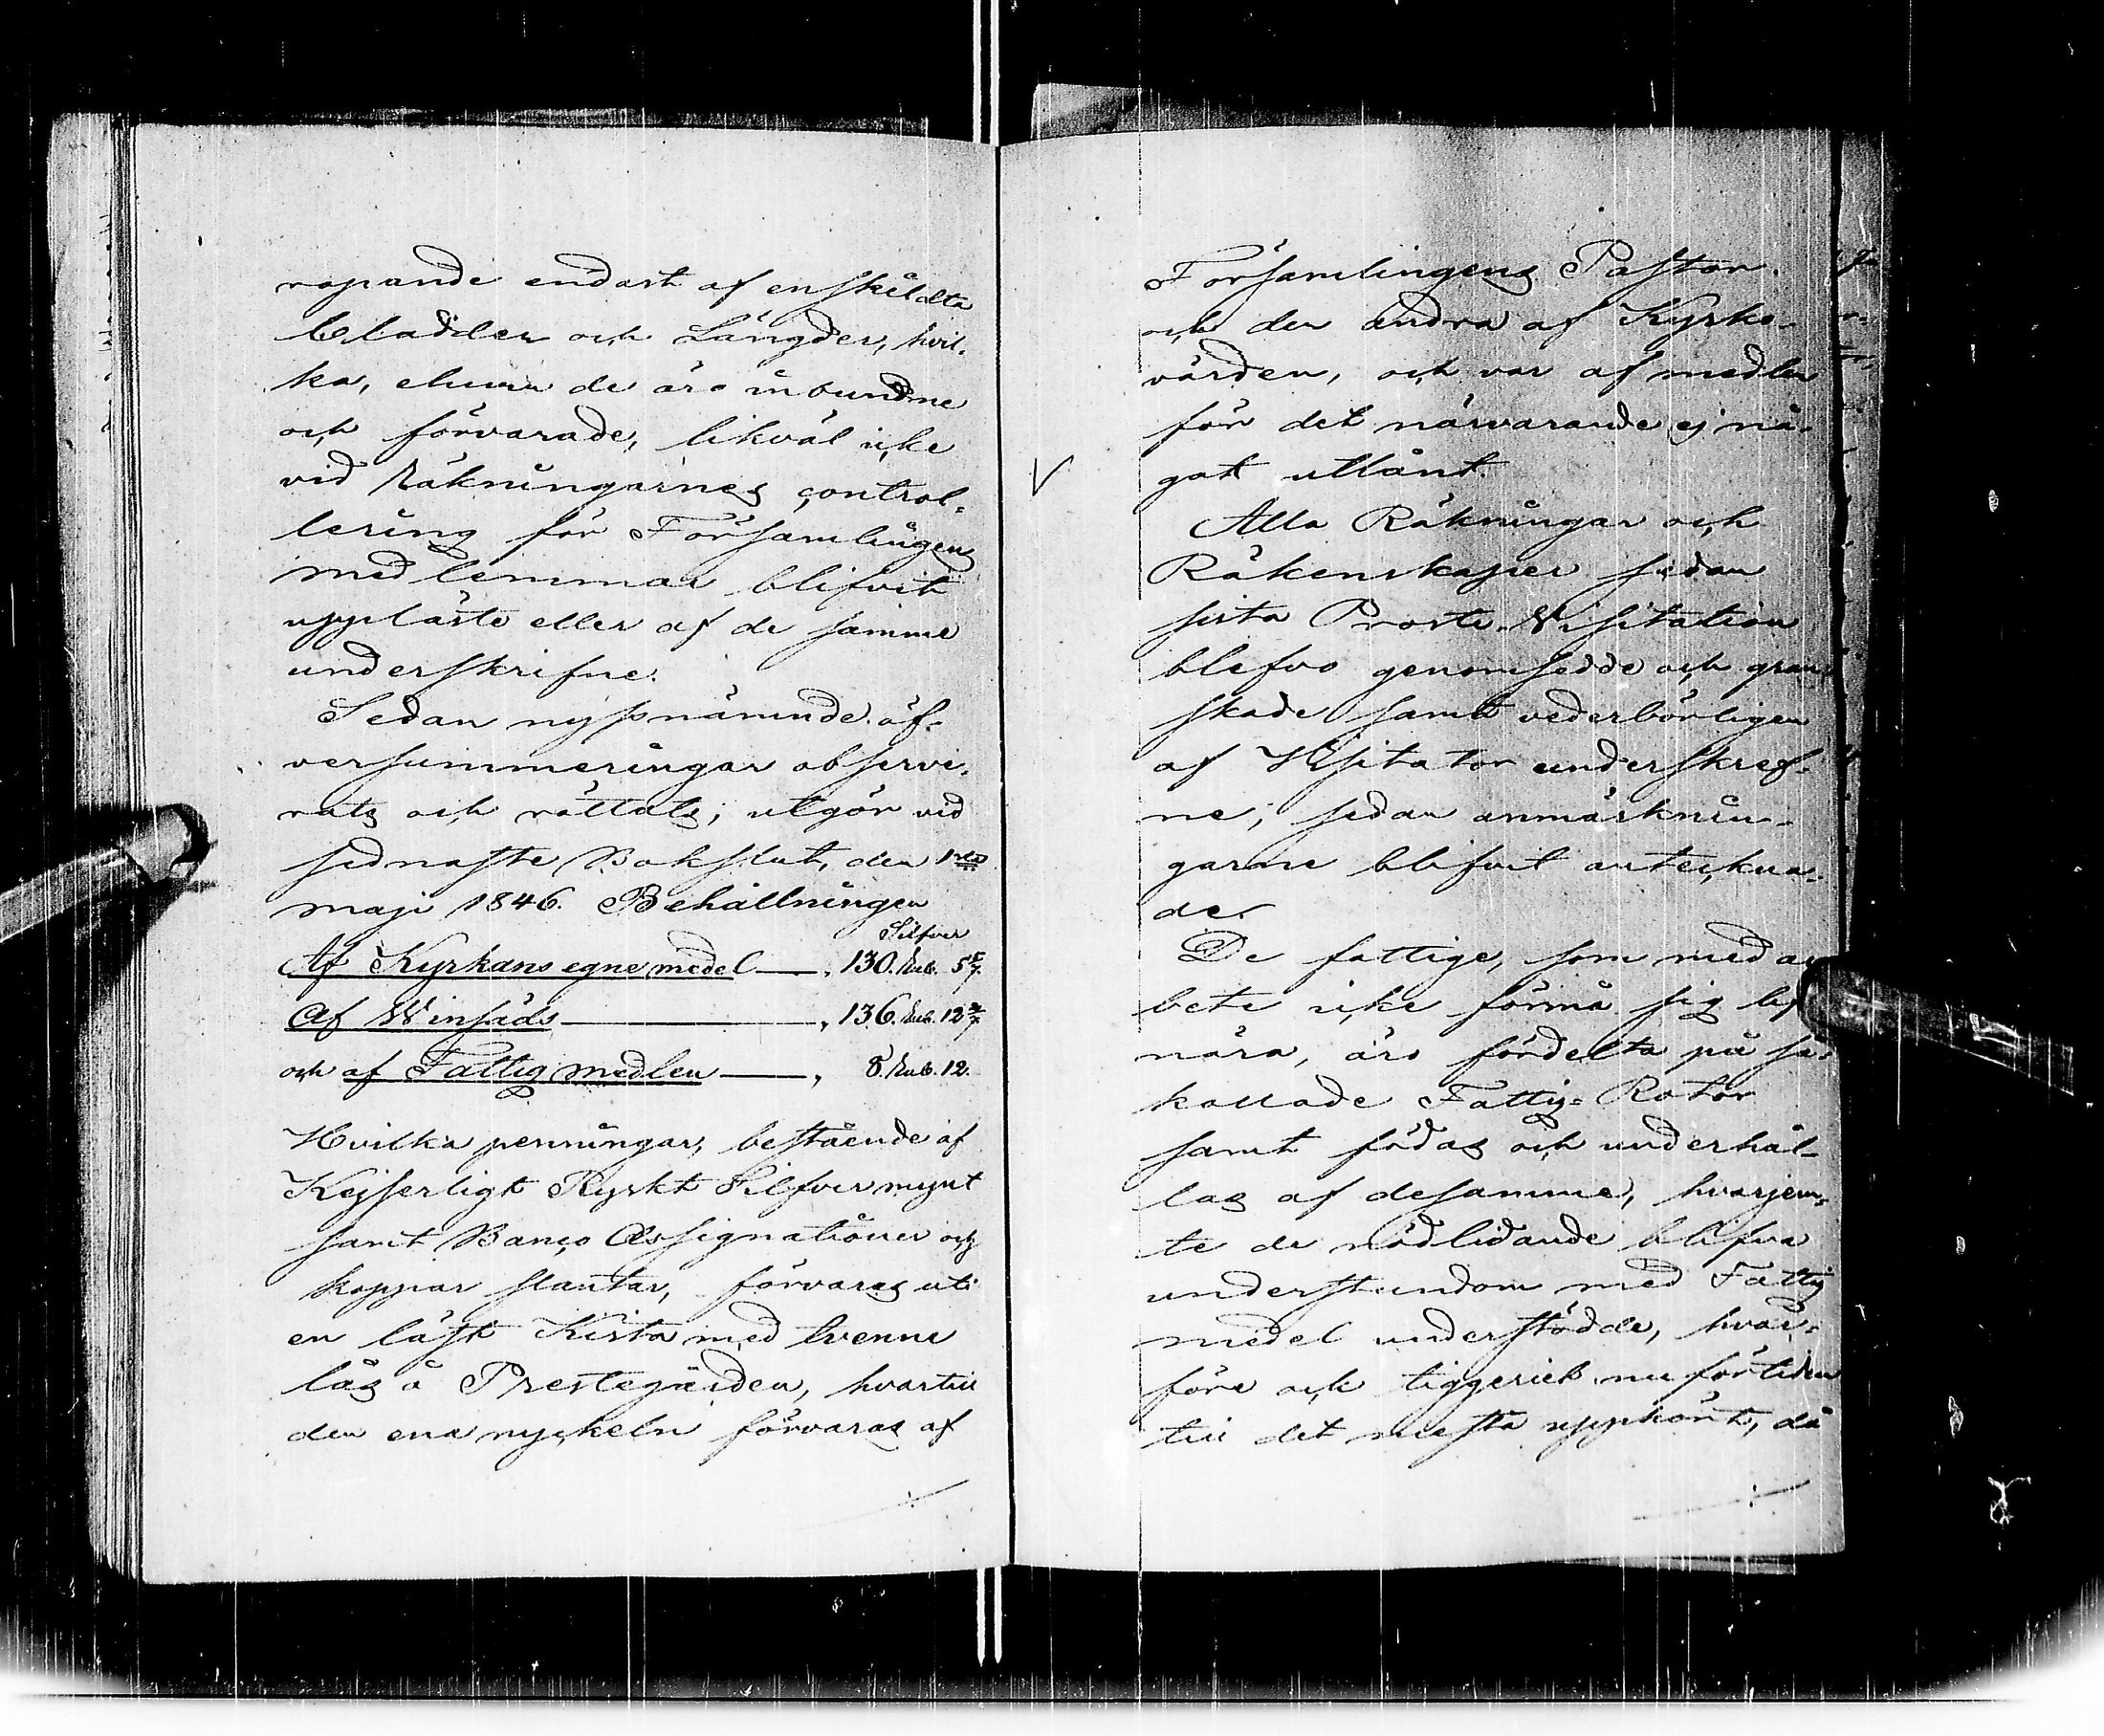 ropande endast af enskildta
Bladder och Längder, hvil-
ka, ehuru de äro inbundne
och förvarade, likväl icke
vid Räkningarnes control-
lering för Församlingens
medlemmar blifvit
uppläste eller af de samme
underskrifne.
Sedan nyssnämnde öf-
versummeringar observe-
rats och rättats; utgör vid
sednaste Bokslut, den 1sta
maji 1846. Behållningen
Silfver
Af Kyrkans egne medel — 130. Rub. 5 5/7.
Af Winsäds — 136. Rub. 12 2/7.
och af Fattig medlen — 8. Rub. 12.
Hvilka penningar, bestående af
Kejserligt Ryskt Silfver mynt
samt Banco Assignationer och
koppar slantar, förvaras uti
en låst Kista med tvenne
lås å Prestegården, hvartill
den ena nyckeln förvaras af
Församlingens Pastor
och den andra af Kyrko-
värden, och var af medlen
för det närvarande ej nå-
got utlånt.
V
Alla Räkningar och
Räkenskaper sedan
sista Prosts-Visitation
blefvo genomsedde och gran-
skade samt vederbörligen
af Visitator underskref-
ne, sedan anmärknin-
garne blifvit anteckna-
de.
De fattige, som med ar
bete icke förmå sig
nära, äro fördelta på så
kallade Fattig-Rotor
samt födas och underhål-
las af desamme, hvarjem-
te de nödlidande blifva
understundom med Fattig
medel understödde, hvar-
före ock tiggeriet nu förtiden
till det mesta upphört, då